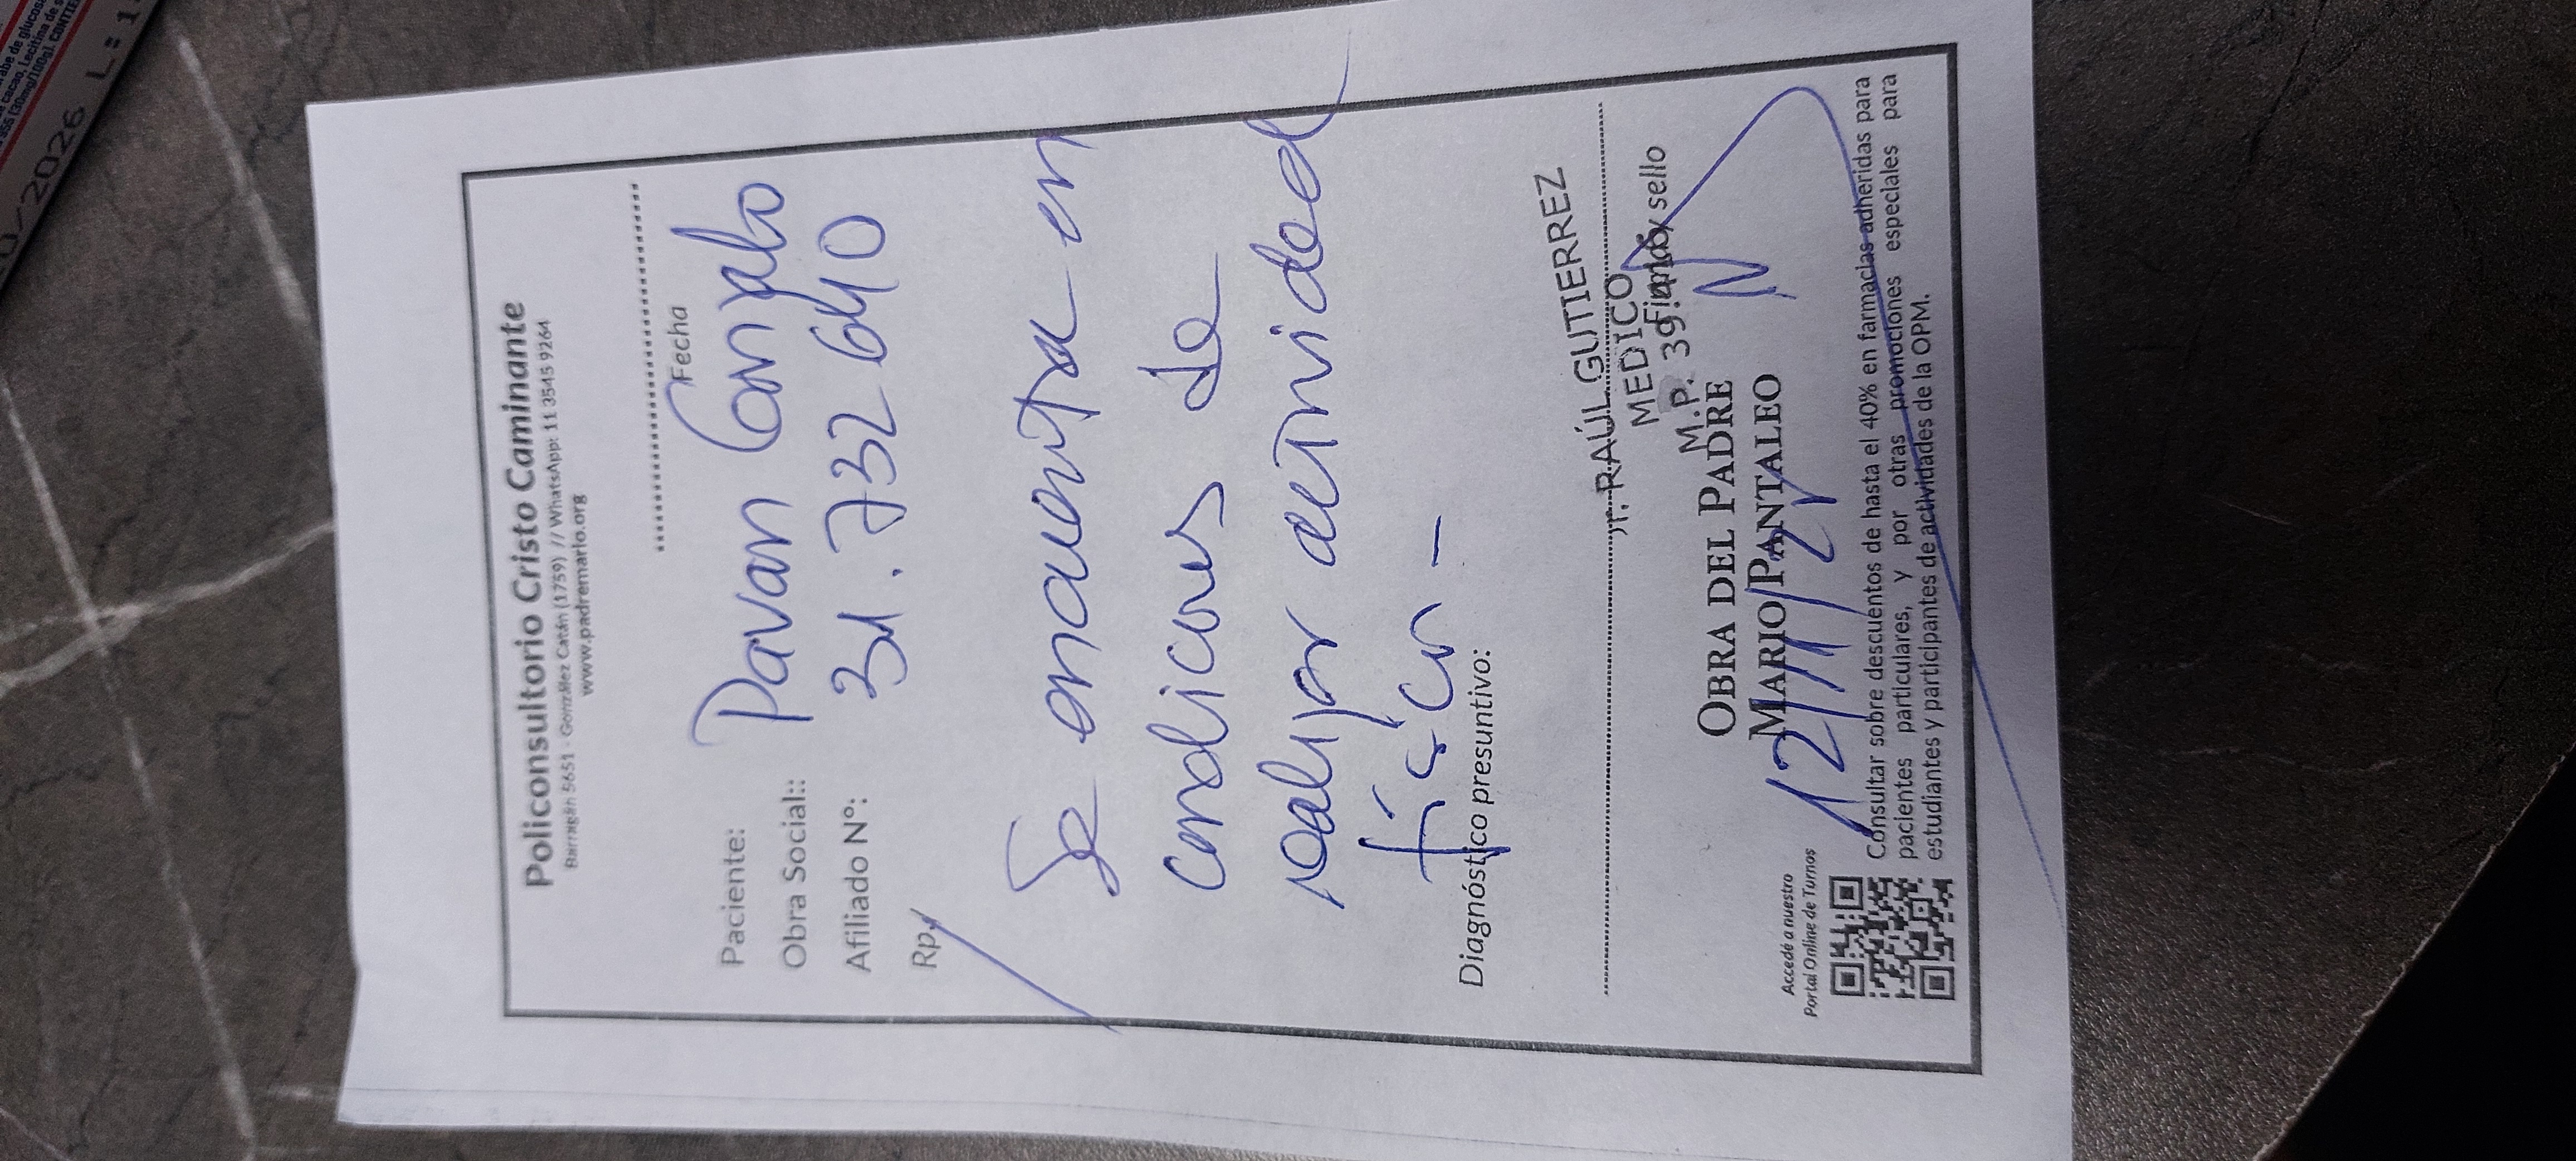 Policonsultorio Cristo Caminante
Barragán 5651 - González Catán (1759) // WhatsApp: 11 3545 9264
www.padremario.org
Fecha
Paciente: Pavan Gonzalo
Obra Social::
31.732640
Afiliado Nº:
Rp/
Se encuentra en
condiciones de
realizar actividad
física -
Diagnóstico presuntivo:
Dr. RAÚL GUTIERREZ
MEDICO
M.P. 39
Firma y sello
OBRA DEL PADRE
MARIO PANTALEO
12/11/2
Accedé a nuestro
Portal Online de Turnos
Consultar sobre descuentos de hasta el 40% en farmacias adheridas para
pacientes particulares, y por otras promociones especiales para
estudiantes y participantes de actividades de la OPM.
0/2026 L= 1